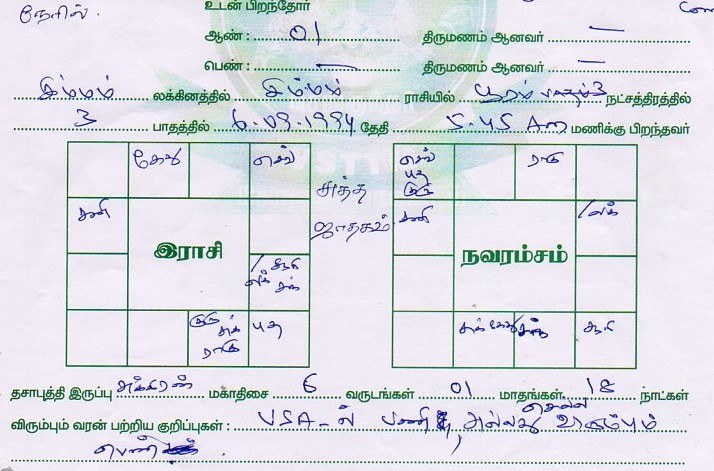 நேரில்.
உடன் பிறந்தோர்
ஆண் : 01 திருமணம் ஆனவர் —
பெண் : — திருமணம் ஆனவர் —
சிம்மம் லக்கினத்தில் சிம்மம் ராசியில் பூரம் 3 நட்சத்திரத்தில்
3 பாதத்தில் 6-09-1994 தேதி 5.45 Am மணிக்கு பிறந்தவர்
கேது செவ்
சனி
இராசி
சூரி
லக் சந்
குரு சுக் ராகு புத
சுத்த ஜாதகம்
செவ் புத குரு ராகு
சனி லக்
நவரம்சம்
சுக் கேது சந் சூரி
தசாபுத்தி இருப்பு சுக்கிரன் மகாதிசை 6 வருடங்கள் 01 மாதங்கள் 18 நாட்கள்
விரும்பும் வரன் பற்றிய குறிப்புகள் : USA-ல் பணி, அல்லது செல்ல விரும்பும்
பெண்